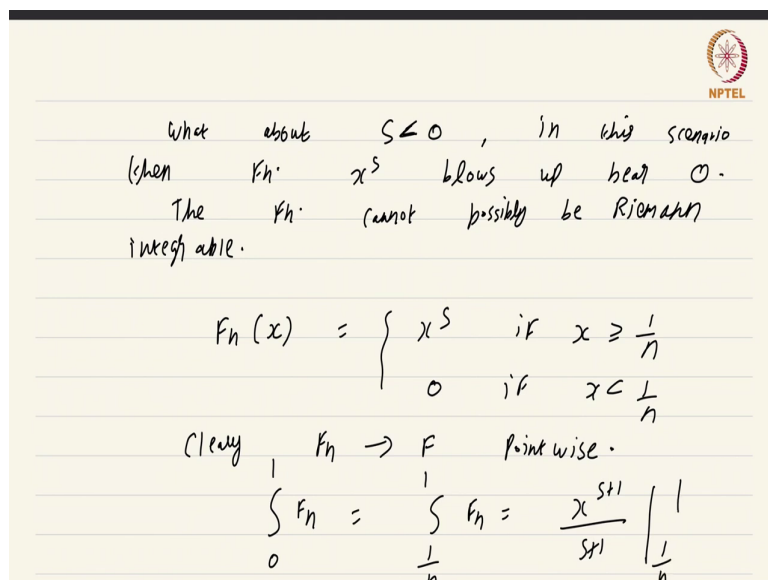 NPTEL
What about S<0, in this scenario
then Fn. x^s blows up near 0.
The Fn. cannot possibly be Riemann
integrable.
Fn(x) = { x^s if x ≥ 1/n
0 if x < 1/n
Clearly, Fn → F Pointwise.
∫_0^1 Fn = ∫_{1/n}^1 Fn = x^{s+1}/(s+1) |_{1/n}^1